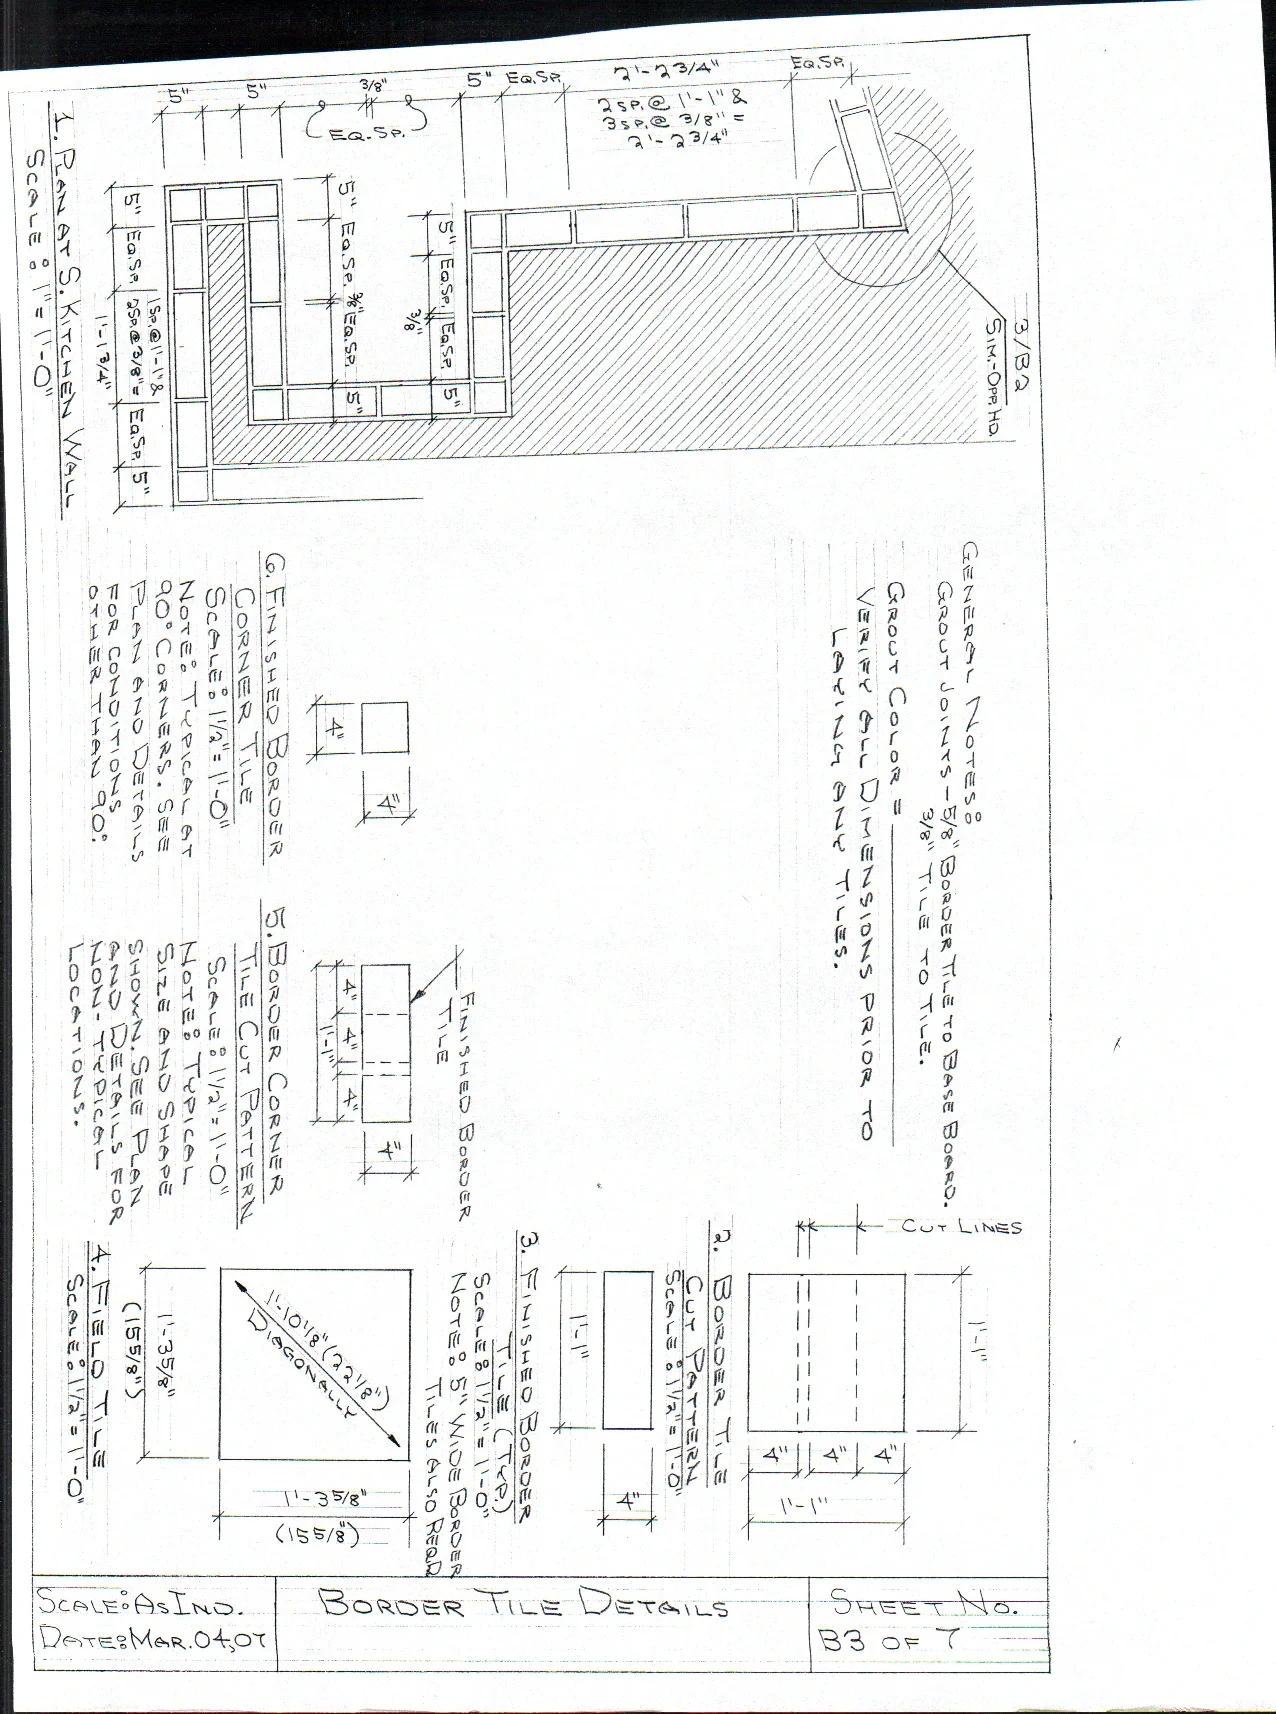 5"
5"
3/8"
EQ. SP.
5"
EQ.SP.
2'-2 3/4"
2 SP. @ 1'-1" &
3 SP. @ 3/8" =
2'-2 3/4"
EQ.SP.
3/B2
SIM.-OPP.HD.
5"
EQ.SP.
3/8"
EQ.SP.
5"
5"
EQ.SP.
3/8"
EQ.SP.
5"
5"
EQ.SP.
1 SP.@ 1'-1" &
2 SP @ 3/8" =
1'-1 3/4"
EQ.SP.
5"
1. PLAN AT S. KITCHEN WALL
SCALE: 1" = 1'-0"
GENERAL NOTES:
GROUT JOINTS - 5/8" BORDER TILE TO BASE BOARD.
3/8" TILE TO TILE.
GROUT COLOR =
VERIFY ALL DIMENSIONS PRIOR TO
LAYING ANY TILES.
4"
4"
6. FINISHED BORDER
CORNER TILE
SCALE: 1 1/2" = 1'-0"
NOTE: TYPICAL AT
90° CORNERS. SEE
PLAN AND DETAILS
FOR CONDITIONS
OTHER THAN 90°.
FINISHED BORDER
TILE
4"
4"
4"
1'-1"
4"
5. BORDER CORNER
TILE CUT PATTERN
SCALE: 1 1/2" = 1'-0"
NOTE: TYPICAL
SIZE AND SHAPE
SHOWN. SEE PLAN
AND DETAILS FOR
NON-TYPICAL
LOCATIONS.
CUT LINES
1'-1"
4"
4"
4"
1'-1"
2. BORDER TILE
CUT PATTERN
SCALE: 1 1/2" = 1'-0"
1'-1"
4"
3. FINISHED BORDER
TILE (TYP.)
SCALE: 1 1/2" = 1'-0"
NOTE: 5" WIDE BORDER
TILES ALSO REQD
1'-10 1/8" (22 1/8")
DIAGONALLY
1'-3 5/8"
(15 5/8")
1'-3 5/8"
(15 5/8")
4. FIELD TILE
SCALE: 1 1/2" = 1'-0"
SCALE: AS IND.
DATE: MAR. 04, 07
BORDER TILE DETAILS
SHEET NO.
B3 OF 7